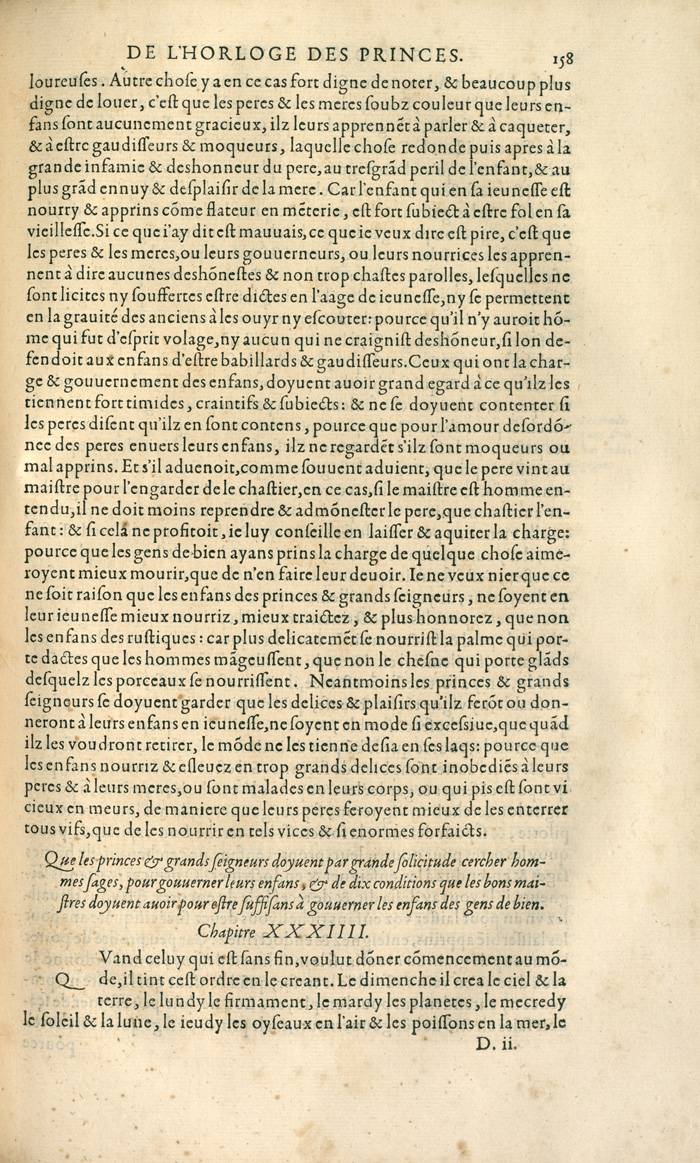 DE L'HORLOGE DES PRINCES. 158
loureuſes. Autre choſe y a en ce cas fort digne de noter, & beaucoup plus
digne de louer, c'eſt que les peres & les meres ſoubz couleur que leurs en-
fans ſont aucunement gracieux, ilz leurs apprennẽt à parler & à caqueter,
& à eſtre gaudiſſeurs & moqueurs, laquelle choſe redonde puis apres à la
grande infamie & deshonneur du pere, au treſgrãd peril de l'enfant, & au
plus grãd ennuy & deſplaiſir de la mere. Car l'enfant qui en ſa ieuneſſe eſt
nourry & apprins cõme flateur en mẽterie, eſt fort ſubiect à eſtre fol en ſa
vieilleſſe. Si ce que i'ay dit eſt mauuais, ce que ie veux dire eſt pire, c'eſt que
les peres & les meres, ou leurs gouuerneurs, ou leurs nourrices les appren-
nent à dire aucunes deshõneſtes & non trop chaſtes parolles, leſquelles ne
ſont licites ny ſouffertes eſtre dictes en l'aage de ieuneſſe, ny ſe permettent
en la grauité des anciens à les ouyr ny eſcouter: pource qu'il n'y auroit hõ-
me qui fut d'eſprit volage, ny aucun qui ne craigniſt deshõneur, ſi lon de-
fendoit aux enfans d'eſtre babillards & gaudiſſeurs. Ceux qui ont la char-
ge & gouuernement des enfans, doyuent auoir grand egard à ce qu'ilz les
tiennent fort timides, craintifs & ſubiects: & ne ſe doyuent contenter ſi
les peres diſent qu'ilz en ſont contens, pource que pour l'amour deſordõ-
nee des peres enuers leurs enfans, ilz ne regardẽt s'ilz ſont moqueurs ou
mal apprins. Et s'il aduenoit, comme ſouuent aduient, que le pere vint au
maiſtre pour l'engarder de le chaſtier, en ce cas, ſi le maiſtre eſt homme en-
tendu, il ne doit moins reprendre & admõneſter le pere, que chaſtier l'en-
fant: & ſi cela ne profitoit, ie luy conſeille en laiſſer & aquiter la charge:
pource que les gens de bien ayans prins la charge de quelque choſe aime-
royent mieux mourir, que de n'en faire leur deuoir. Ie ne veux nier que ce
ne ſoit raiſon que les enfans des princes & grands ſeigneurs, ne ſoyent en
leur ieuneſſe mieux nourriz, mieux traictez, & plus honnorez, que non
les enfans des ruſtiques: car plus delicatemẽt ſe nourriſt la palme qui por-
te dactes que les hommes mãgeuſſent, que non le cheſne qui porte glãds
deſquelz les porceaux ſe nourriſſent. Neantmoins les princes & grands
ſeigneurs ſe doyuent garder que les delices & plaiſirs qu'ilz ferõt ou don-
neront à leurs enfans en ieuneſſe, ne ſoyent en mode ſi exceſſiue, que quãd
ilz les voudront retirer, le mõde ne les tienne deſia en ſes laqs: pource que
les enfans nourriz & eſleuez en trop grands delices ſont inobediẽs à leurs
peres & à leurs meres, ou ſont malades en leurs corps, ou qui pis eſt ſont vi
cieux en meurs, de maniere que leurs peres feroyent mieux de les enterrer
tous vifs, que de les nourrir en tels vices & ſi enormes forfaicts.
Que les princes & grands ſeigneurs doyuent par grande ſolicitude cercher hom-
mes ſages, pour gouuerner leurs enfans, & de dix conditions que les bons mai-
ſtres doyuent auoir pour eſtre ſuffiſans à gouuerner les enfans des gens de bien.
Chapitre XXXIIII.
QVand celuy qui eſt ſans fin, voulut dõner cõmencement au mõ-
de, il tint ceſt ordre en le creant. Le dimenche il crea le ciel & la
terre, le lundy le firmament, le mardy les planetes, le mecredy
le ſoleil & la lune, le ieudy les oyſeaux en l'air & les poiſſons en la mer, le
D. ii.